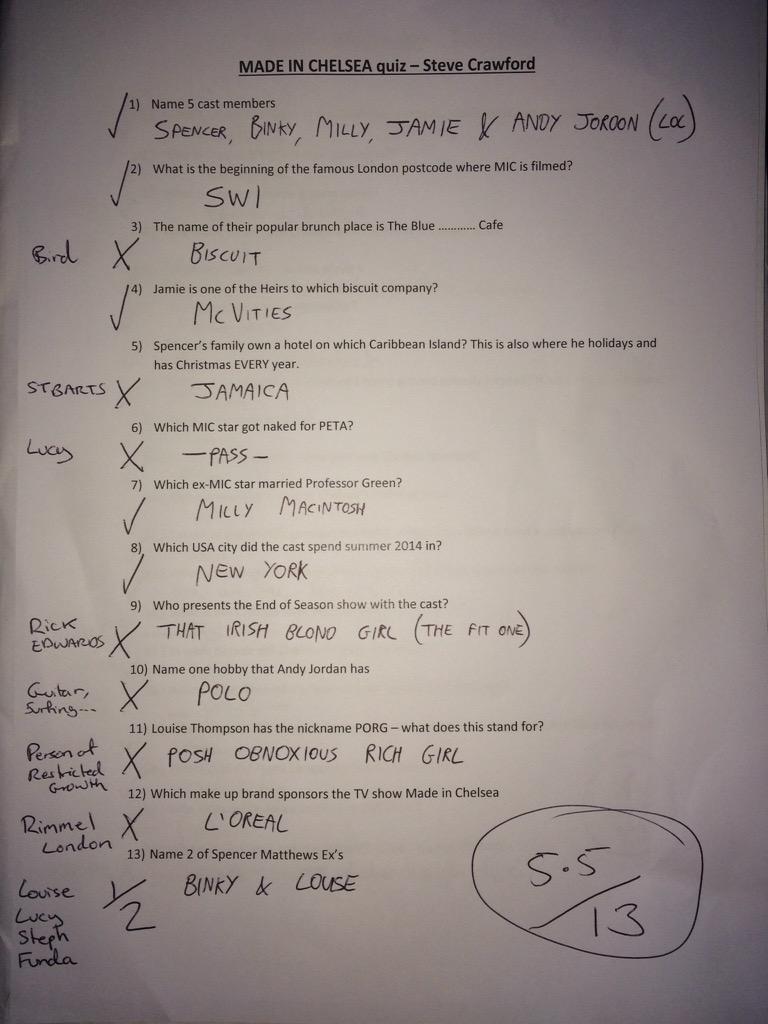 MADE IN CHELSEA quiz – Steve Crawford
1) Name 5 cast members
SPENCER, BINKY, MILLY, JAMIE & ANDY JORDON (LOL)
2) What is the beginning of the famous London postcode where MIC is filmed?
SW1
3) The name of their popular brunch place is The Blue ............ Cafe
Bird X BISCUIT
4) Jamie is one of the Heirs to which biscuit company?
McVITIES
5) Spencer's family own a hotel on which Caribbean Island? This is also where he holidays and
has Christmas EVERY year.
ST BARTS X JAMAICA
6) Which MIC star got naked for PETA?
Lucy X — PASS —
7) Which ex-MIC star married Professor Green?
MILLY MACINTOSH
8) Which USA city did the cast spend summer 2014 in?
NEW YORK
9) Who presents the End of Season show with the cast?
Rick
EDWARDS X THAT IRISH BLOND GIRL (THE FIT ONE)
10) Name one hobby that Andy Jordan has
Guitar,
Surfing... X POLO
11) Louise Thompson has the nickname PORG – what does this stand for?
Person of
Restricted
Growth X POSH OBNOXIOUS RICH GIRL
12) Which make up brand sponsors the TV show Made in Chelsea
Rimmel
London X L'OREAL
13) Name 2 of Spencer Matthews Ex's
1/2 BINKY & LOUSE
Louise
Lucy
Steph
Funda
5.5/13